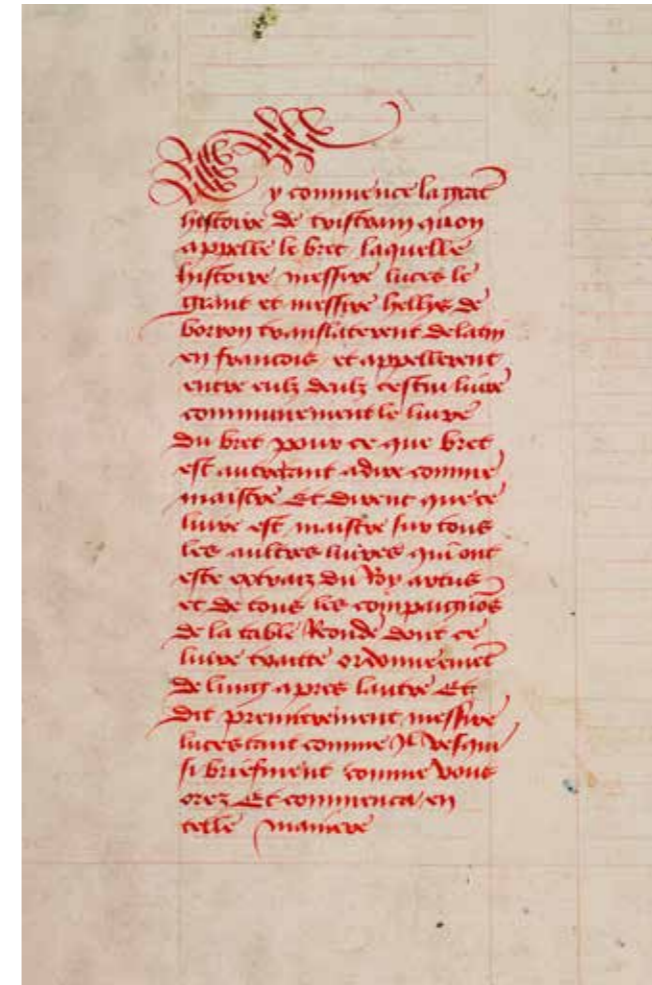 Cy commence la grāt
histoire de tristram quon
appelle le bret laquelle
histoire messire luces le
grant et messire hellys de
borron translaterent de latin
en francois et appellerent
entre eulx deulx cestui livre
communement le livre
du bret pour ce que bret
est autretant a dire comme
maistre Et dirent que ce
livre est maistre sur tous
les aultres livres qui ont
este extraiz du Roy artus
et de tous les compaignōs
de la table Ronde dont ce
livre traitte ordonneemēt
de lung apres lautre Et
dit premierement messire
luces tant comme Il vesqui
si briefment comme vous
orez Et commenca en
telle maniere